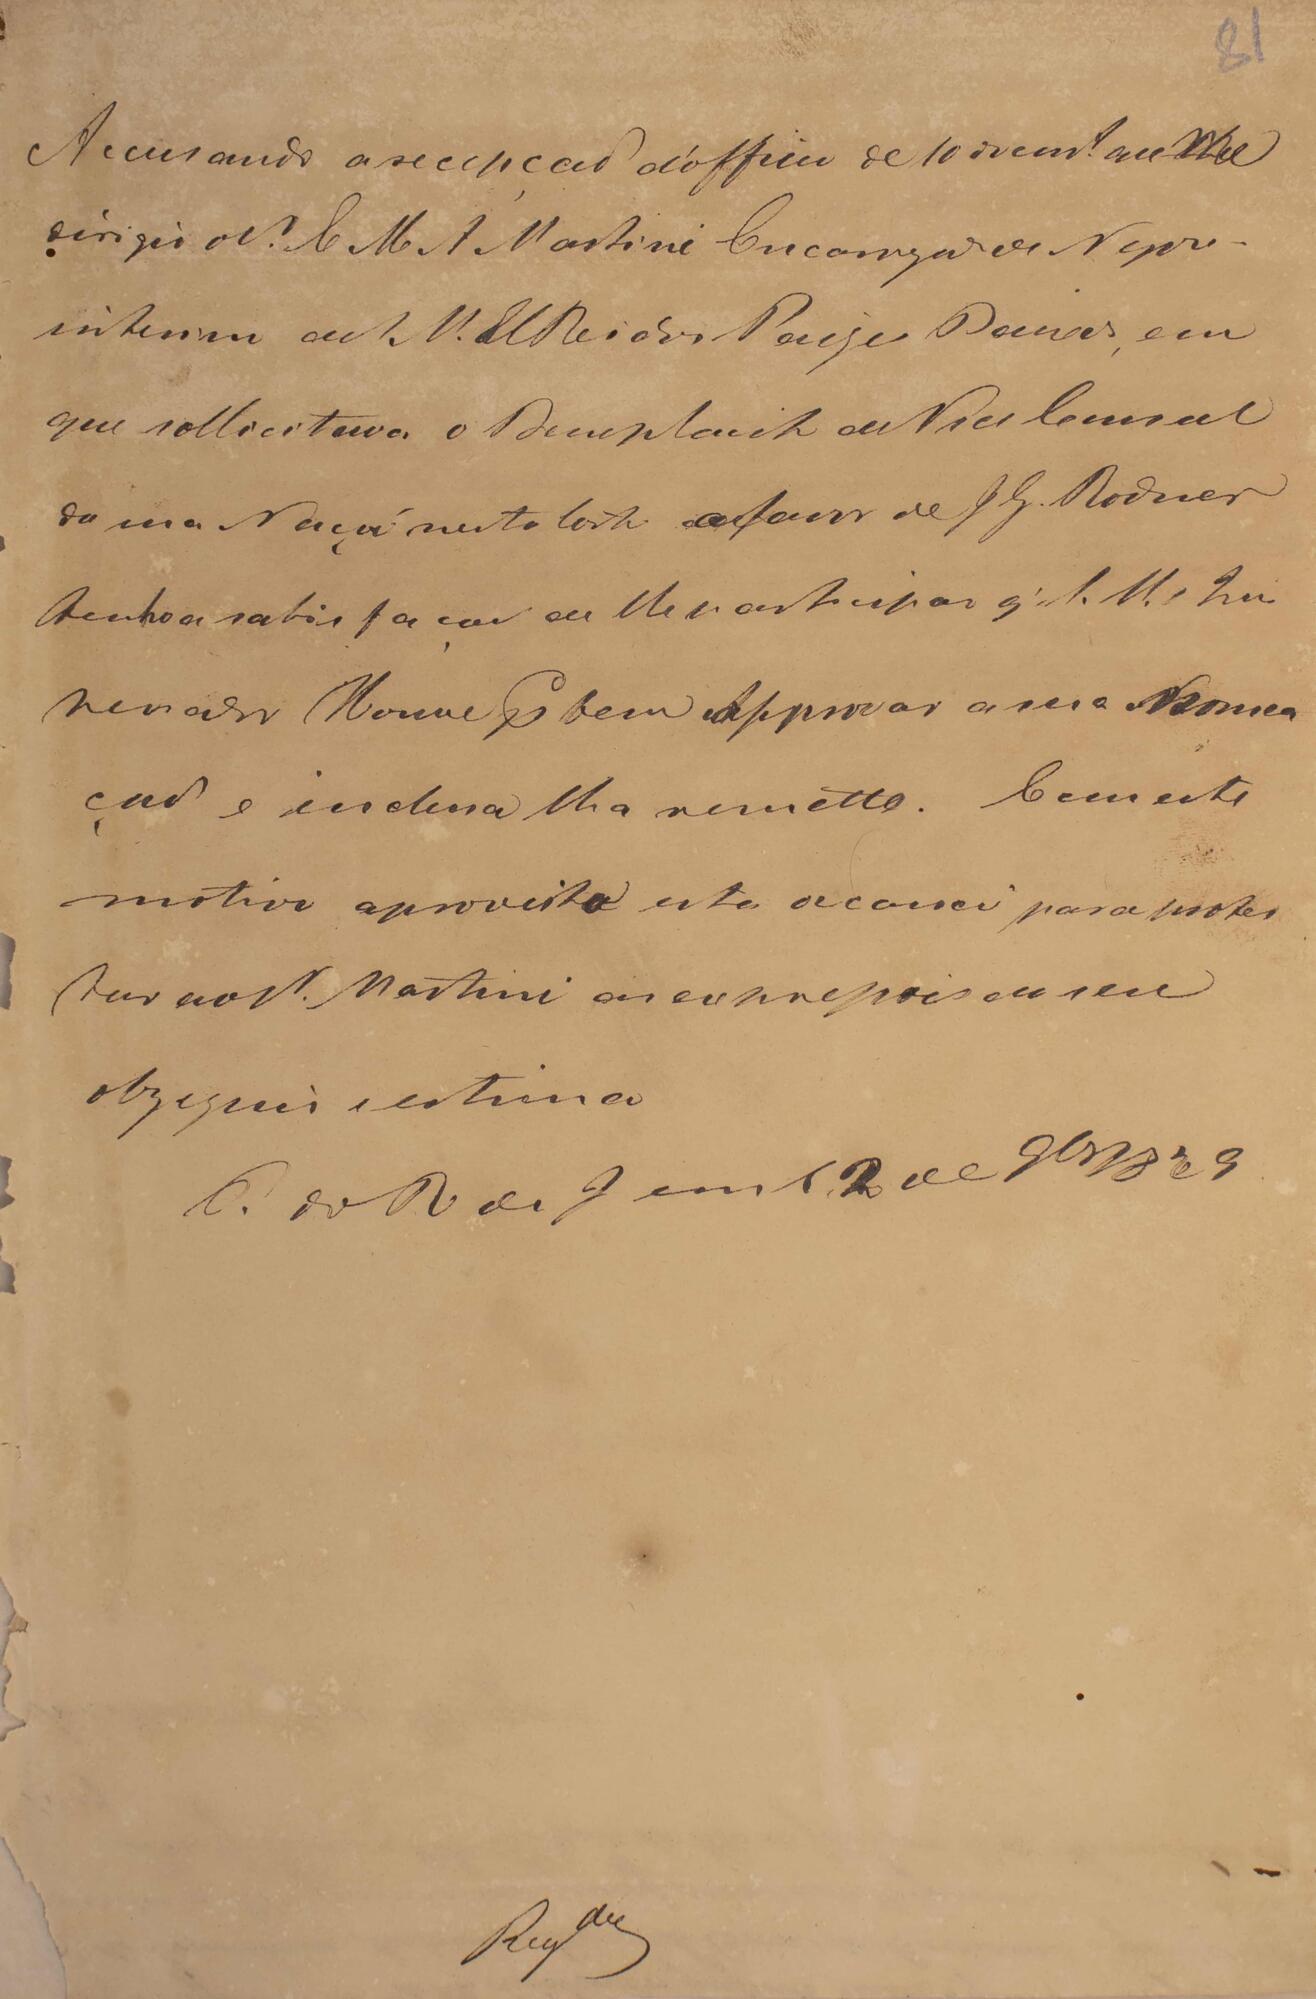 81
Accusando a recepçaõ d'officio de 10 do corr.te que me
dirigio o S.r C M A Martini Encarregado de Nego-
interim de S. M. El Rei dos Paizes Baixos, em
que sollicitava o Beneplacito de Vice Consul
da sua Naçaõ nesta Corte a favor de J G. Rodner
tenho a satisfaçaõ de lhe participar q' S. M. o Im
perador Houve P bem Approvar a sua Nomea
çaõ e incluza lha remetto. Com este
motivo aproveito esta occasiaõ para protes
tar ao S.r Martini as expressois de seu
obzequio e estima
C. do R de J em 12 de 9br 1829